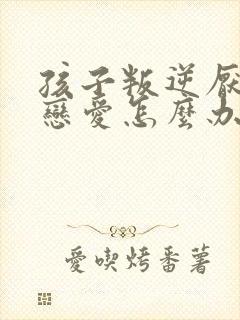 孩子叛逆厭
戀愛怎麼办
愛喫烤番薯